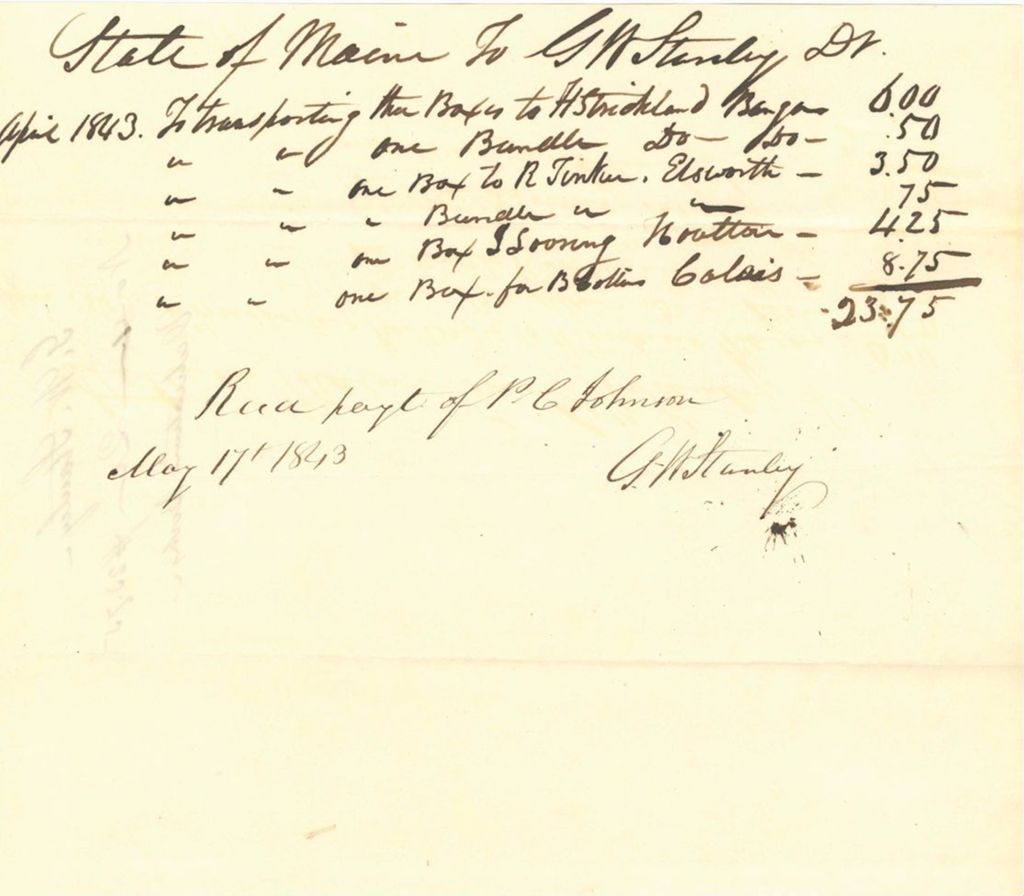 State of Maine To G W Stanley Dr.
April 1843. To transporting three Boxes to H Strickland Bangor 6.00
" " one Bundle Do - Do - .50
" " one Box to R Tinker. Elsworth - 3.50
" " " Bundle " " 75
" " one Box Houlton - 4.25
" " one Box for Calais - 8.75
23.75
Recd payt of P C Johnson
May 17th 1843 G. W Stanley